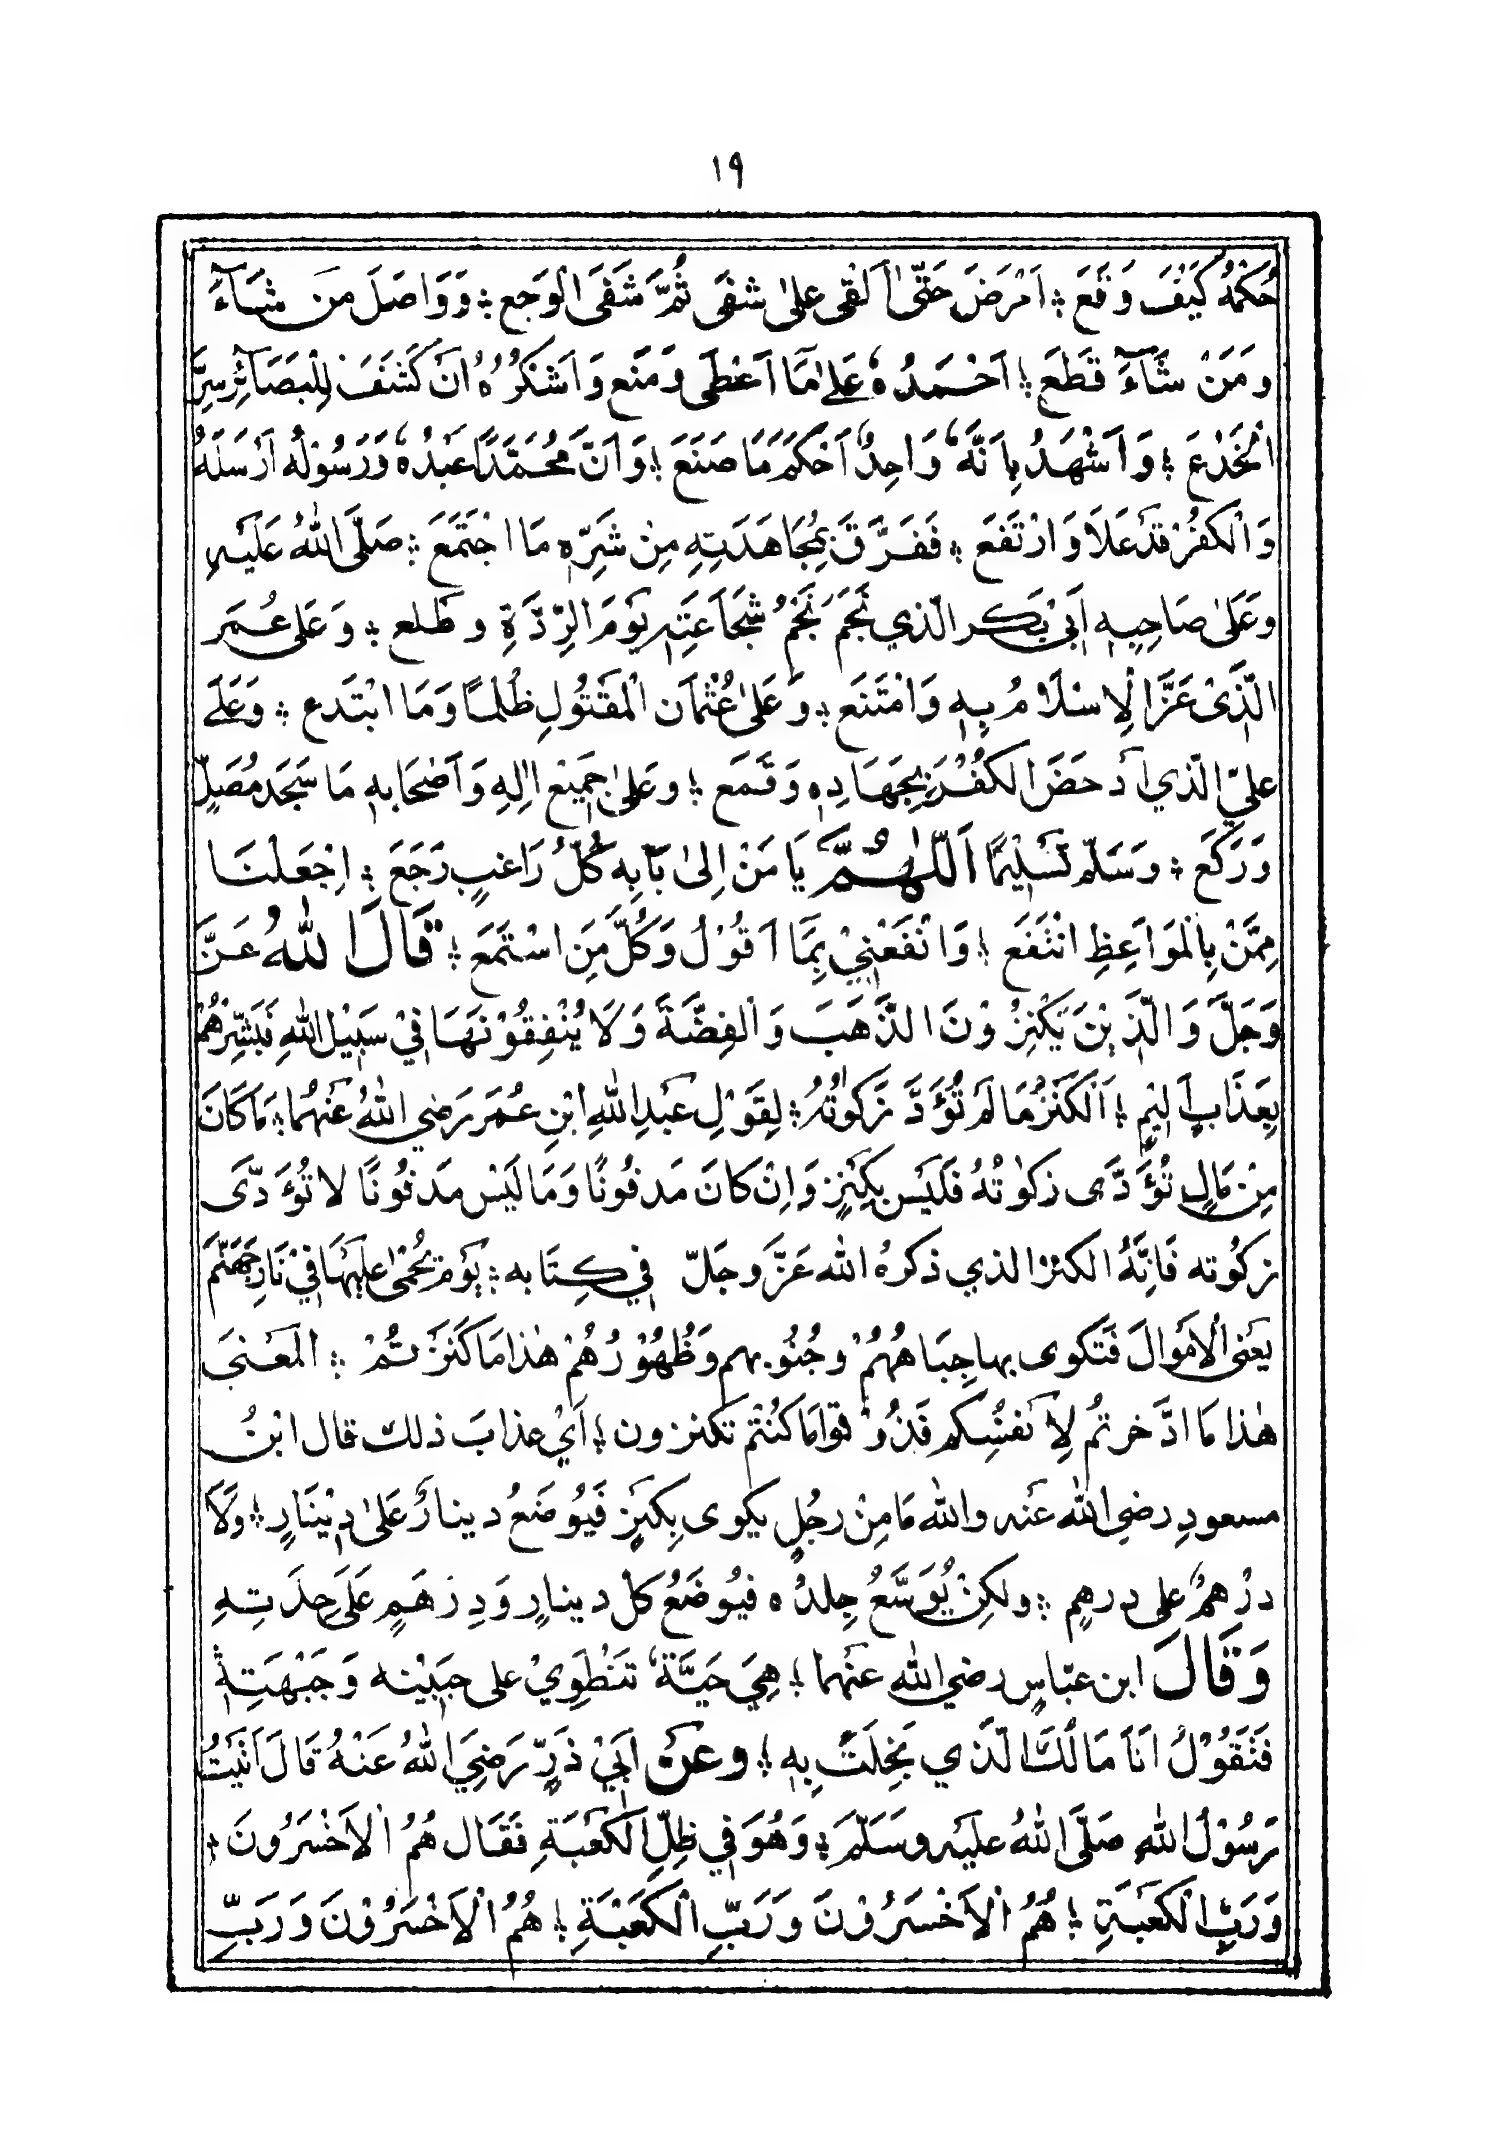 ١٩
حُكْمُهُ كَيْفَ وَقَعَ ؛ اَمْرَضَ حَتّٰى اَلْقٰى عَلىٰ شفى ثُمَّ شَفَى الْوَجع ؛ وَوَاصَلَ مَن شَآءَ
وَمَنْ شَآءَ قَطَعَ ؛ اَحْمَدُهٗ عَلىٰ مَا اَعْطَى وَمَنَع وَاَشْكُرُهُ اَنْ كَشَفَ لِلْبَصَآئِرِ سِرَّ
الْخَدْعَ ؛ وَاَشْهَدُ بِاَنَّهٗ وَاحِدٌ اَحْكَمَ مَا صَنَعَ ؛ وَاَنَّ مُحَمَّدًا عَبْدُهٗ وَرَسُوْلُهُ اَرْسَلَهُ
وَالْكُفْرُ قَدْ عَلَا وَارْتَفَعَ ؛ فَفَرَّقَ بِمُجَاهَدَتِهِ مِنْ شَرِّهٖ مَا اجْتَمَعَ ؛ صَلَّى اللهُ عَلَيْهِ
وَعَلىٰ صَاحِبِهٖ اَبِيْ بَكرِ الّذي نَجَمَ نَجْمُ شَجَاعَتِهٖ يَوْمَ الرِّدَّةِ وطَلع ؛ وَعَلى عُمَر
الّذِيْ عَزَّ الْاِسْلَامُ بِهٖ وَامْتَنَع ؛ وَعَلىٰ عُثْمَان الْمَقْتُولِ ظُلْمًا وَمَا ابْتَدَع ؛ وَعَلٰے
عليّ الّذي اَدحَضَ الكُفْرَ بِجِهَادِهٖ وَقَمَع ؛ وعَلىٰ جَمِيْع اٰلِهِ وَاَصْحَابِهٖ مَا سَجَدَ مُصَلٍّ
وَرَكَعَ ؛ وَسَلّم تَسْلِيْمًا اَللّٰهُمَّ يَا مَنْ اِلىٰ بَابِهِ كُلُّ رَاغبٍ رَجَعَ ؛ اِجْعَلْنَا
مِمَّنْ بِالْمَوَاعِظِ انْتَفَع ؛ وَانْفَعْنِيْ بِمَا اَقُوْلُ وَكُلَّ مَنِ اسْتَمَعَ ؛ قَالَ اللهُ عَزَّ
وَجَلَّ وَالَّذِيْنَ يَكْنِزُوْنَ الذَّهَبَ وَالْفِضَّةَ وَلَا يُنْفِقُوْنَهَا فِيْ سَبِيْلِ اللهِ فَبَشِّرْهُمْ
بِعَذَابٍ اَلِيْمٍ ؛ اَلْكَنْزُ مَا لَمْ تُؤَدَّ زَكٰوتُهُ ؛ لِقَوْلِ عَبْدِ اللهِ ابْنِ عُمَرَ رَضِي اللهُ عَنْهُمَا ؛ مَا كَانَ
مِنْ مَالٍ تُؤَدَّى زكٰوتُهُ فَلَيْس بكِنْزٍ وَاِنْ كَانَ مَدفُونًا وَمَا لَيْس مَدفُونًا لا تُؤَدّٰى
زكٰوته فَاِنَّهُ الكنزُ الذي ذكرهُ الله عَزَّ وجَلّ فِي كِتَابه ؛ يَوْمَ يُحْمىٰ عَلَيْهَا فِيْ نَارِ جَهَنَّمَ
يَعْني الْاَمْوَالَ فَتُكوى بها جِبَاهُهُمْ وجُنُوبهم وَظُهُوْرُهُمْ هٰذا مَا كَنَزْتُمْ ؛ الْمَعْنىٰ
هٰذا مَا ادَّخرتُم لِاَنفُسِكم فَذُوْقوا مَا كُنْتُمْ تكنزون ؛ اَيْ عذابَ ذلك قال ابْنُ
مسعودٍ رضي الله عَنه والله مَا مِنْ رجُلٍ يكوى بِكَنْزٍ فَيُوضَعُ دينارٌ عَلىٰ دِيْنَارٍ ؛ ولَا
دِرْهمٌ على درهمٍ ؛ ولكِنْ يُوَسَّعُ جِلدُه فيُوضَعُ كلّ دينارٍ وَدِرْهَمٍ عَلىٰ حِدَتِهِ
وَقَالَ ابن عبّاسٍ رضي الله عَنهما ؛ هِيَ حَيَّةٌ تَنْطَوِيْ على جَبِيْنه وَجَبْهَتِهٖ
فَتَقُوْلُ اَنَا مَالُكَ الَّذي بَخِلْتَ بِهٖ ؛ وعَنْ اَبِيْ ذَرٍّ رَضِيَ اللهُ عَنْهُ قَالَ اَتَيْتُ
رَسُوْلَ اللهِ صَلَّى اللهُ عليْه وسَلَّمَ ؛ وَهُوَ فِي ظِلِّ الْكَعْبَةِ فَقَال هُمُ الْاَخْسَرُونَ ؛
وَرَبِّ الْكَعْبَةِ ؛ هُمُ الْاَخْسَرُوْنَ وَرَبِّ الْكَعْبَةِ ؛ هُمُ الْاَخْسَرُوْنَ وَرَبِّ